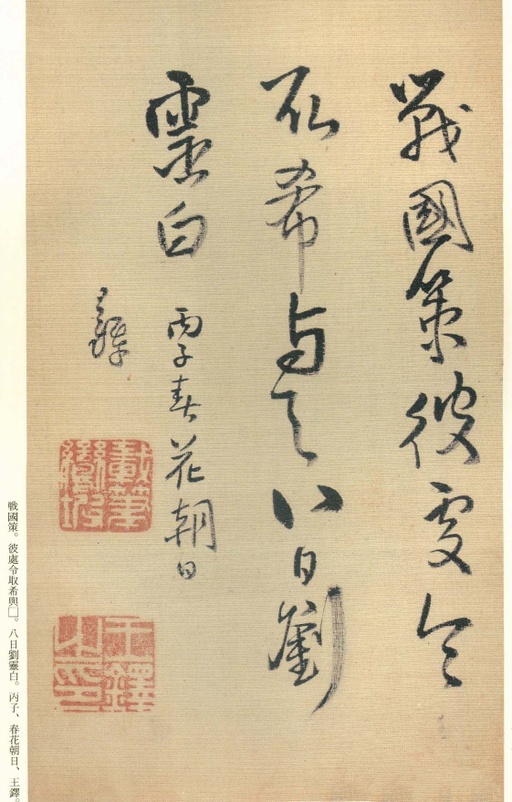 戰國策彼處令
取希與八日劉
靈白
丙子春花朝日
鐸
王鐸之印
戰國策。彼處令取希與□。八日劉靈白。丙子、春花朝日、王鐸。